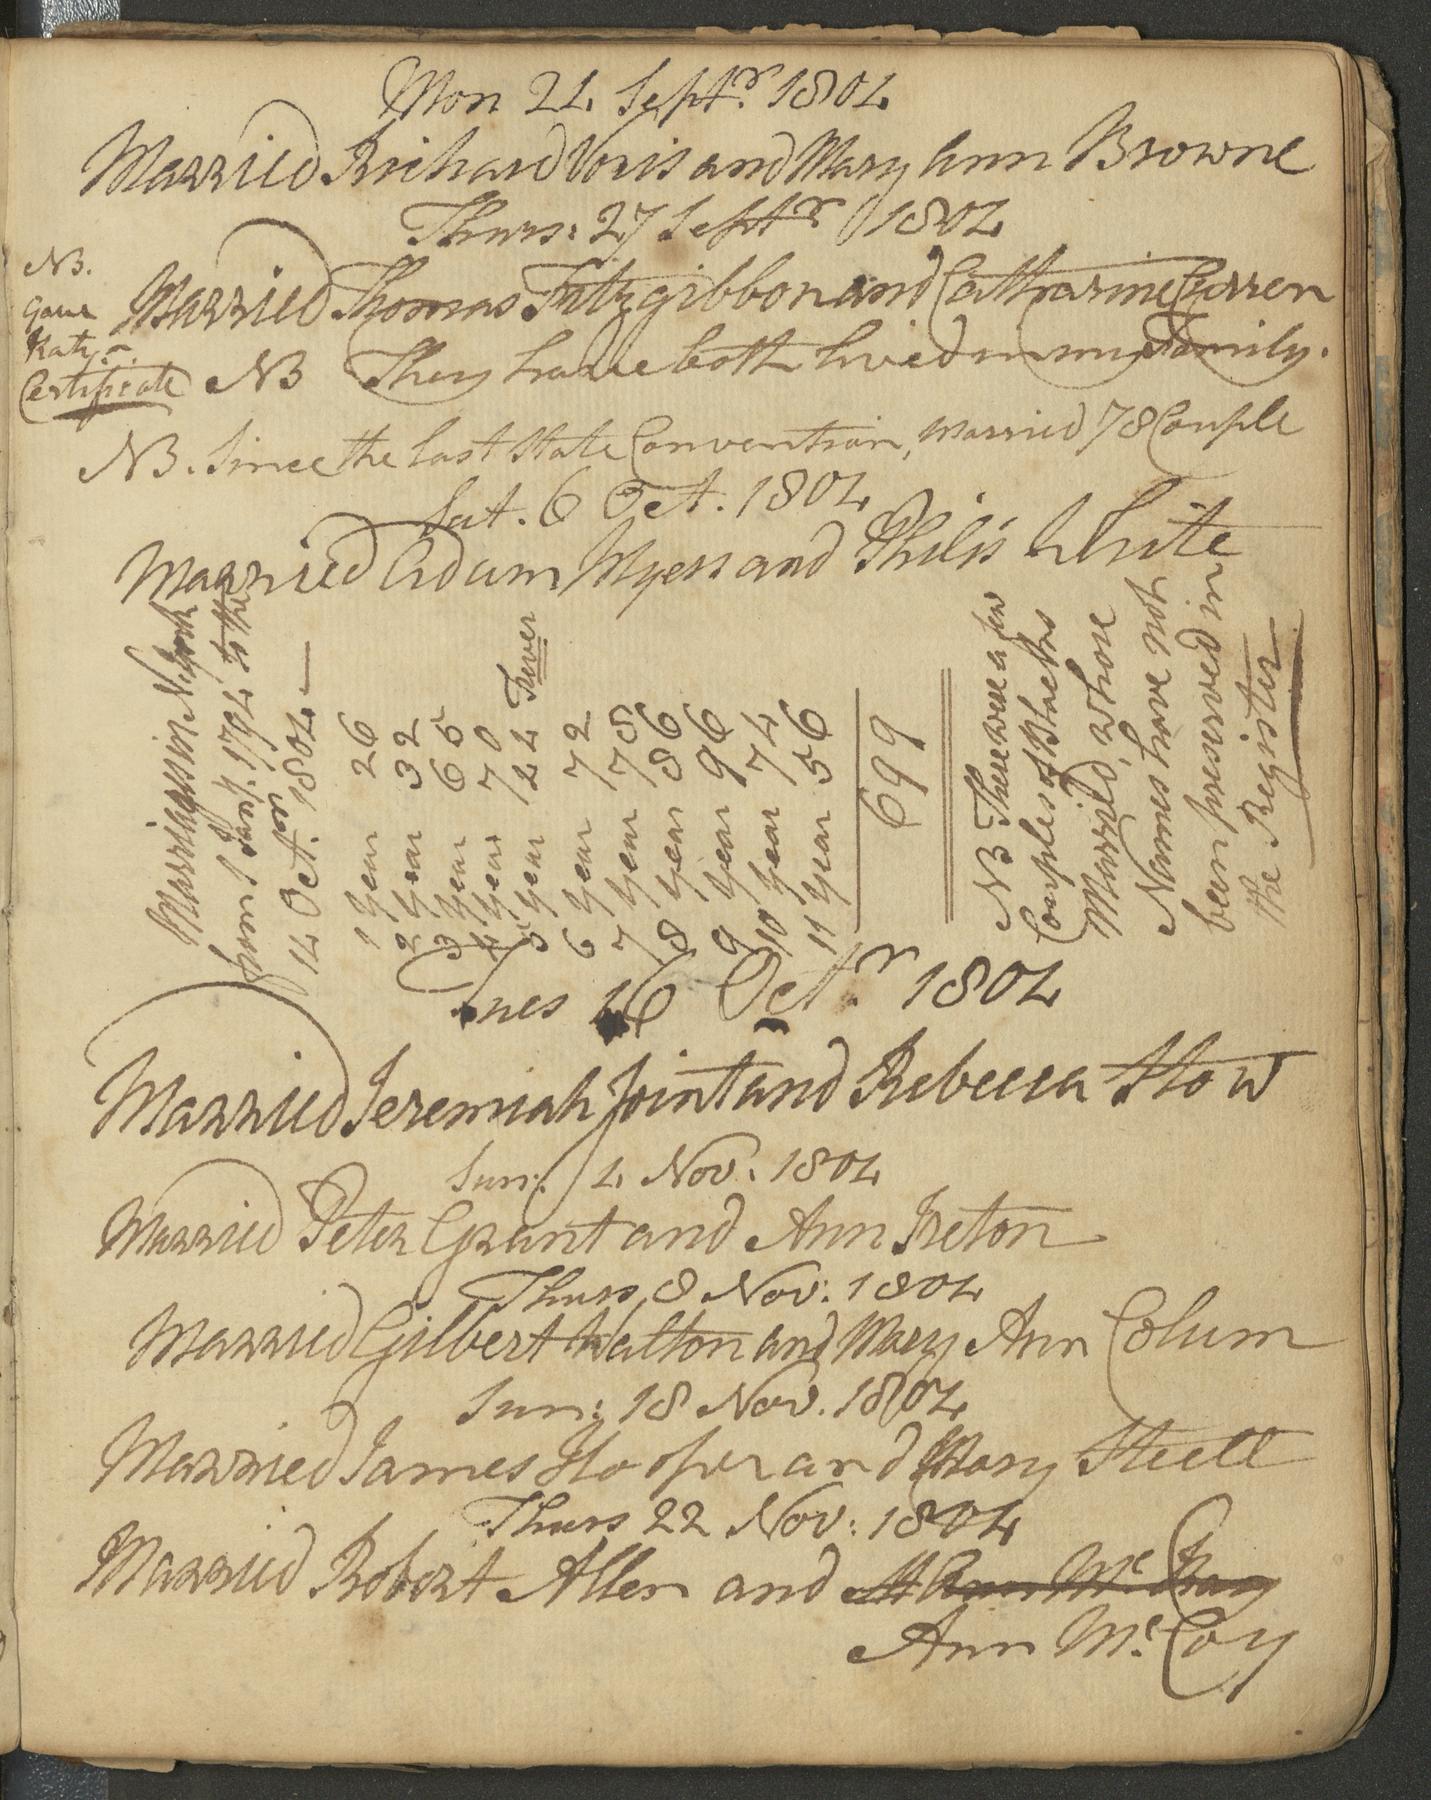 Mon 24 Septr. 1804
Married Richard Voris and Mary Ann Browne
Thurs: 27 Septr 1804
NB.
Gave
Katy a
Certificate
Married Thomas Fitzgibbon and Catharine Curren
NB They have both lived in my Family.
NB. Since the last State Convention, married 78 Couple
Sat. 6 Oct. 1804
Married Adam Myers and Philis White
Marriages in N York
from 1 Jany. 1794 to the
14 Octr. 1804 —
1 year 26
2 year 32
3 year 65
4 year 70
5 year 24 Fever
6 year 72
7 year 78
8 year 86
9 year 96
10 year 74
11 year 56
699
NB There were a few
Couples of Blacks
Married, whose
Names have not
been preserved in
the Register
Tues 16 Octr. 1804
Married Jeremiah Joint and Rebecca Stow
Sun: 4 Nov. 1804
Married Peter Grant and Ann Ireton
Thurs 8 Nov: 1804
Married Gilbert Walton and Mary Ann Colum
Sun: 18 Nov. 1804
Married James Hooper and Mary Steell
Thurs 22 Nov: 1804
Married Robert Allen and
Ann Mc. Coy